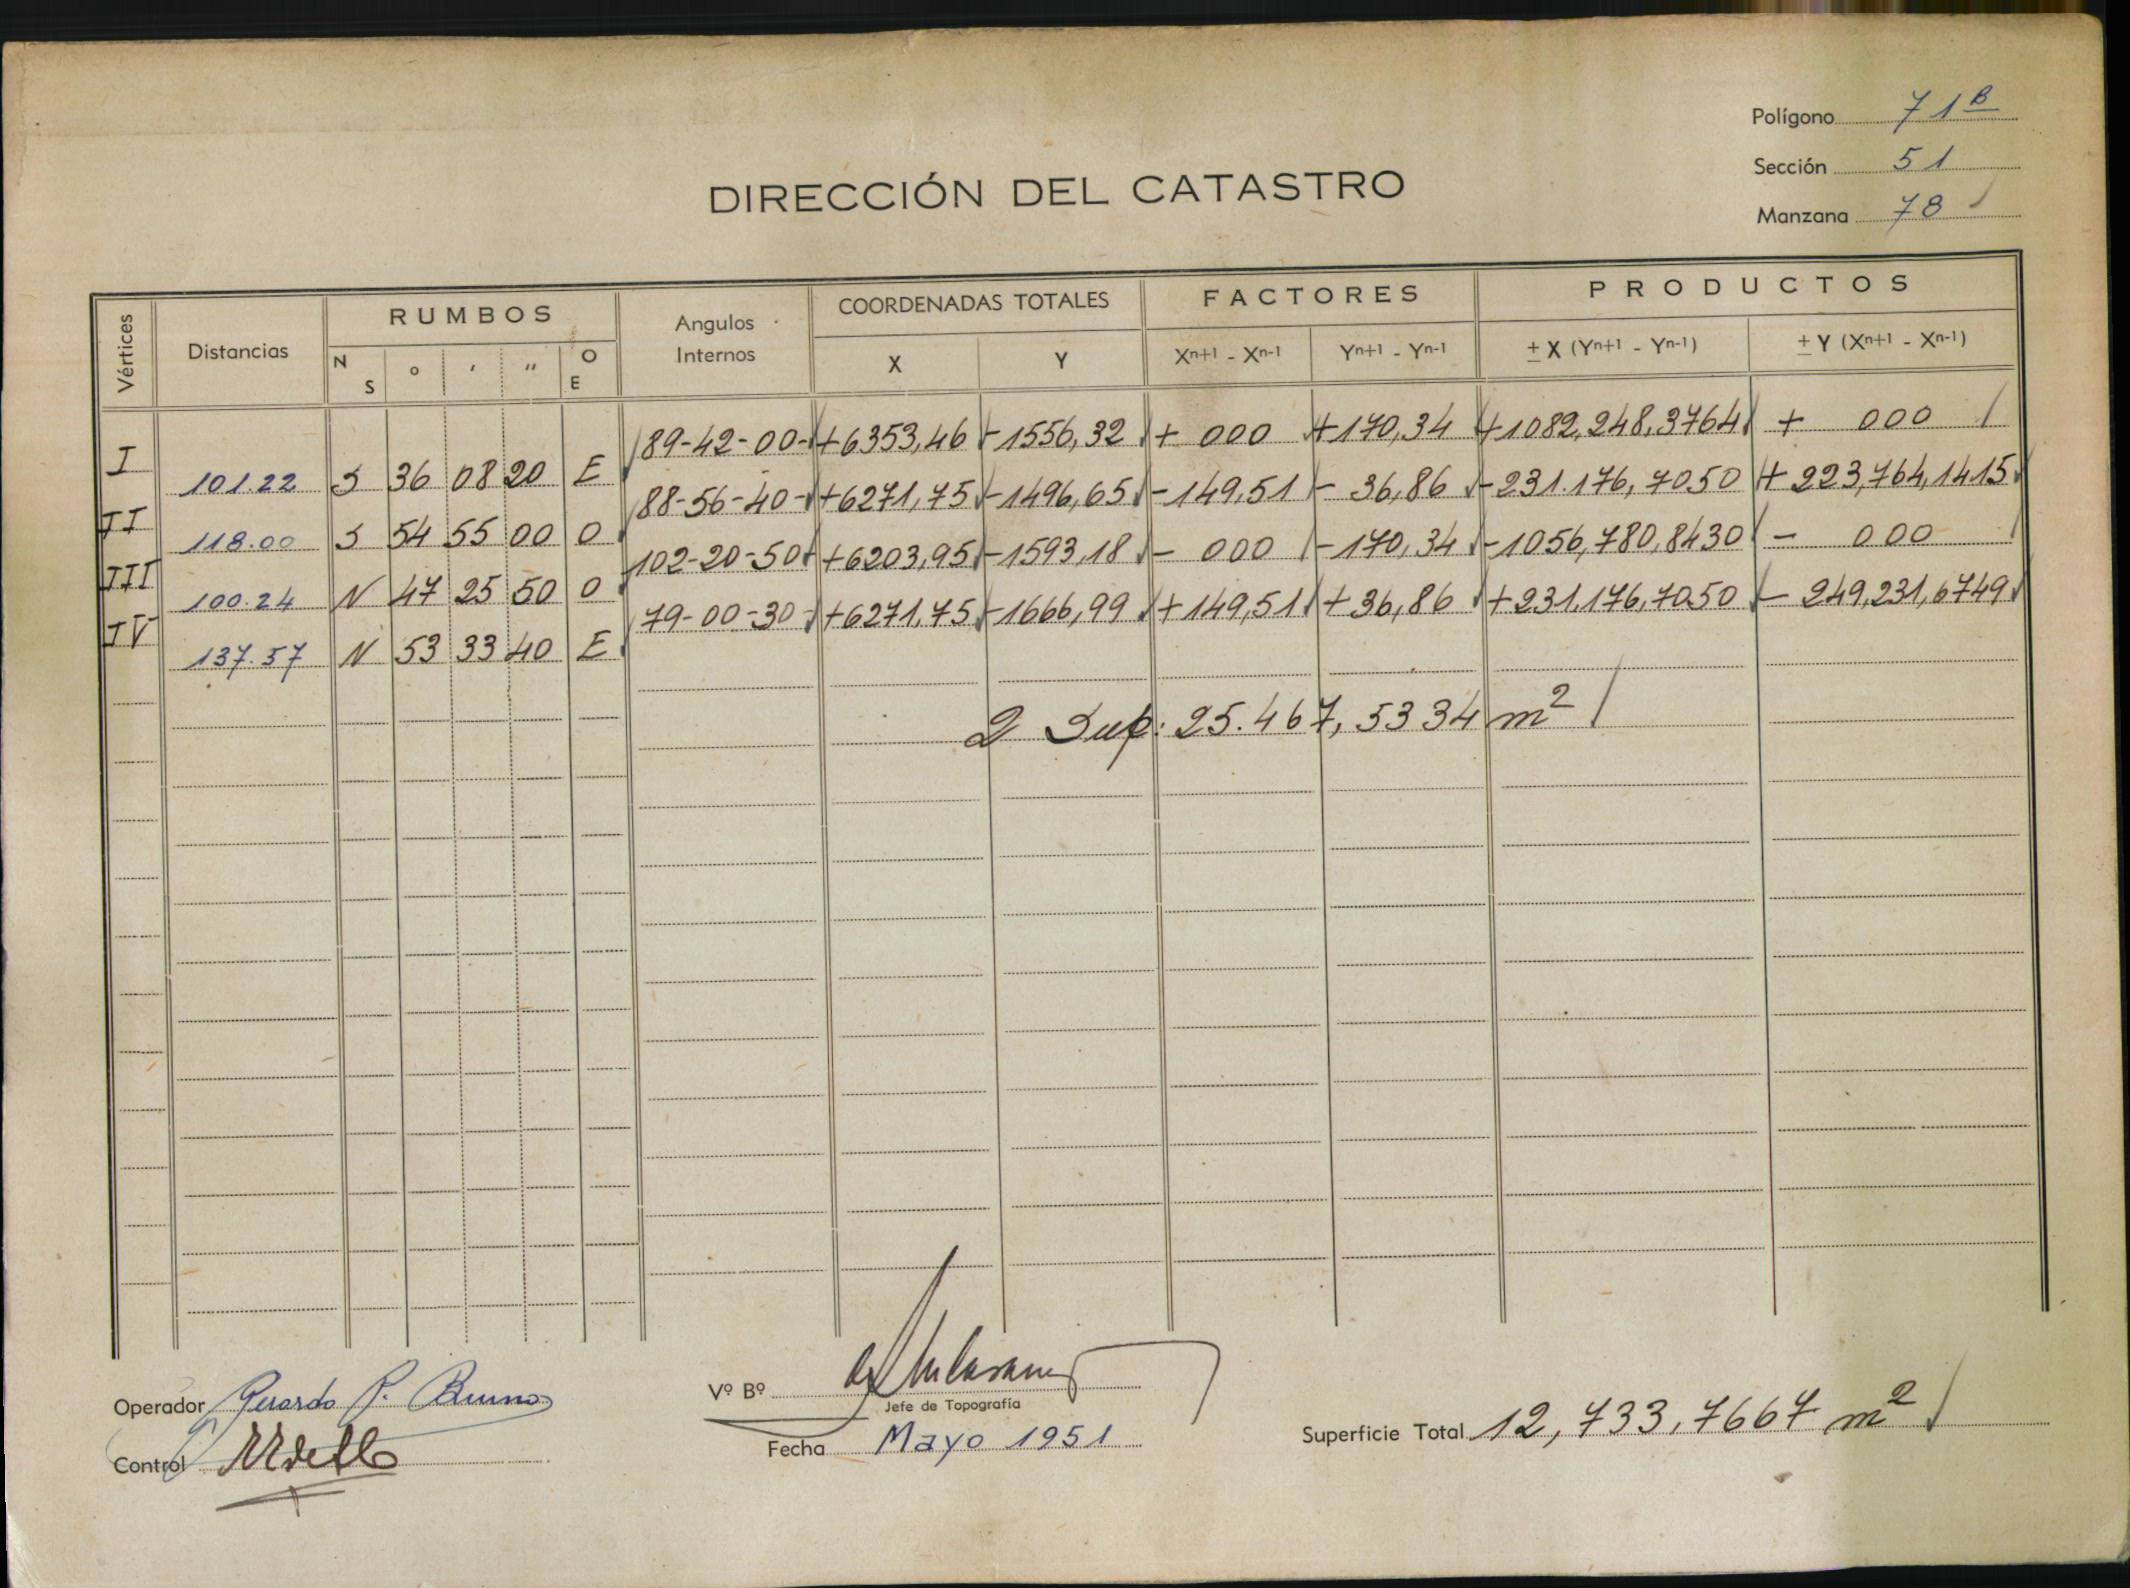 Polígono 71 B
Sección 51
Manzana 78
DIRECCIÓN DEL CATASTRO
Vértices Distancias RUMBOS Angulos Internos COORDENADAS TOTALES FACTORES PRODUCTOS
N S ° ' " O E X Y Xn+1 - Xn-1 Yn+1 - Yn-1 ± X (Yn+1 - Yn-1) ± Y (Xn+1 - Xn-1)
89-42-00- +6353,46 -1556,32 + 000 +170,34 +1082,248,3764 + 000
I 101.22 S 36 08 20 E
88-56-40- +6271,75 -1496,65 -149,51 - 36,86 -231.176,7050 + 223,764,1415
II 118.00 S 54 55 00 O
102-20-50 +6203,95 -1593,18 - 000 -170,34 -1056,780,8430 - 000
III 100.24 N 47 25 50 O
79-00-30- +6271,75 -1666,99 +149,51 +36,86 +231,176,7050 - 249,231,6749
IV 137.57 N 53 33 40 E
2 Sup: 25.467,5334 m²
Operador Gerardo P. Bruno
Control
Vº Bº
Jefe de Topografía
Fecha Mayo 1951
Superficie Total 12,733,7667 m²